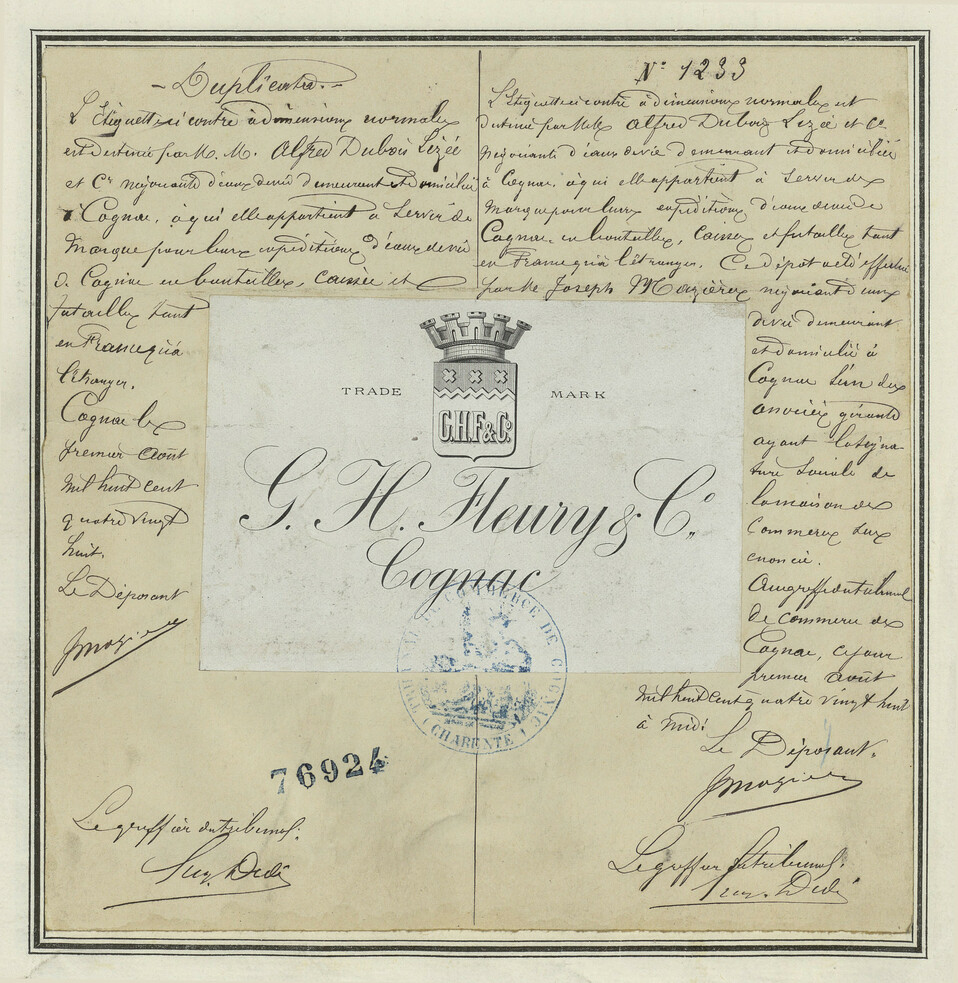 - Duplicata. -
L'Etiquette ci contre à dimensions normales
est destinée par M. M. Alfred Dubois Lizée
et Cie négociants d'eaux de vie demeurant et domiciliés
à Cognac, à qui elle appartient a servir de
Marque pour leurs expéditions d'eaux de vie
de Cognac en bouteilles, caisses et
futailles tant
en France qu'à
l'étranger.
Cognac le
premier Août
mil huit cent
quatre vingt
huit.
Le Déposant
JMazière
Le greffier du tribunal.
N° 1233
L'Etiquette ci contre à dimensions normales est
destinée par MM. Alfred Dubois Lizée et Cie
Négociants d'eaux de vie demeurant et domiciliés
à Cognac, à qui elle appartient à servir de
Marque pour leurs expéditions d'eaux de vie de
Cognac, en bouteilles, caisses et futailles tant
en France qu'à l'étranger. Ce dépôt a été effectué
par Mr Joseph Mazières négociant d'eaux
de vie demeurant
et domicilié à
Cognac l'un des
associés gérants
ayant la signa
ture sociale de
la maison de
Commerce sus
énoncée.
Au greffe du tribunal
de commerce de
Cognac, ce jour
premier août
mil huit cent quatre vingt huit
à midi
Le Déposant.
JMazière
Le greffier du tribunal.
TRADE MARK
G.H.F & Co.
G. H. Fleury & Co.,
Cognac
TRIBUNAL DE COMMERCE DE COGNAC
(CHARENTE)
76924